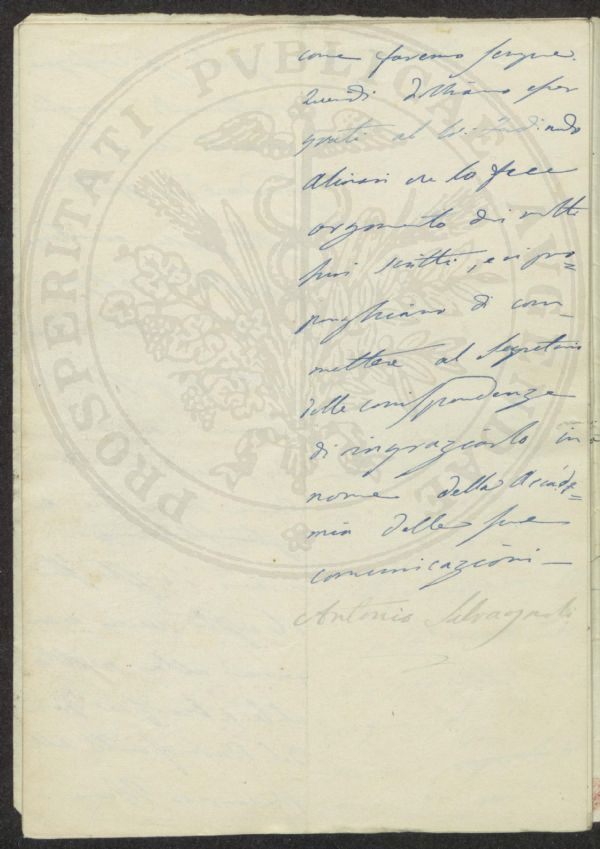 PROSPERITATI PVBLICAE AVGENDAE
come faremo sempre.
Quindi dobbiamo esser
grati al
che la fece
argomento di molti
suoi scritti, e vi pro=
ponghiamo di com-
mettere al Segretario
delle corrispondenze
di ringraziarlo in
nome della Accade=
mia delle sue
comunicazioni —
Antonio Salvagnoli